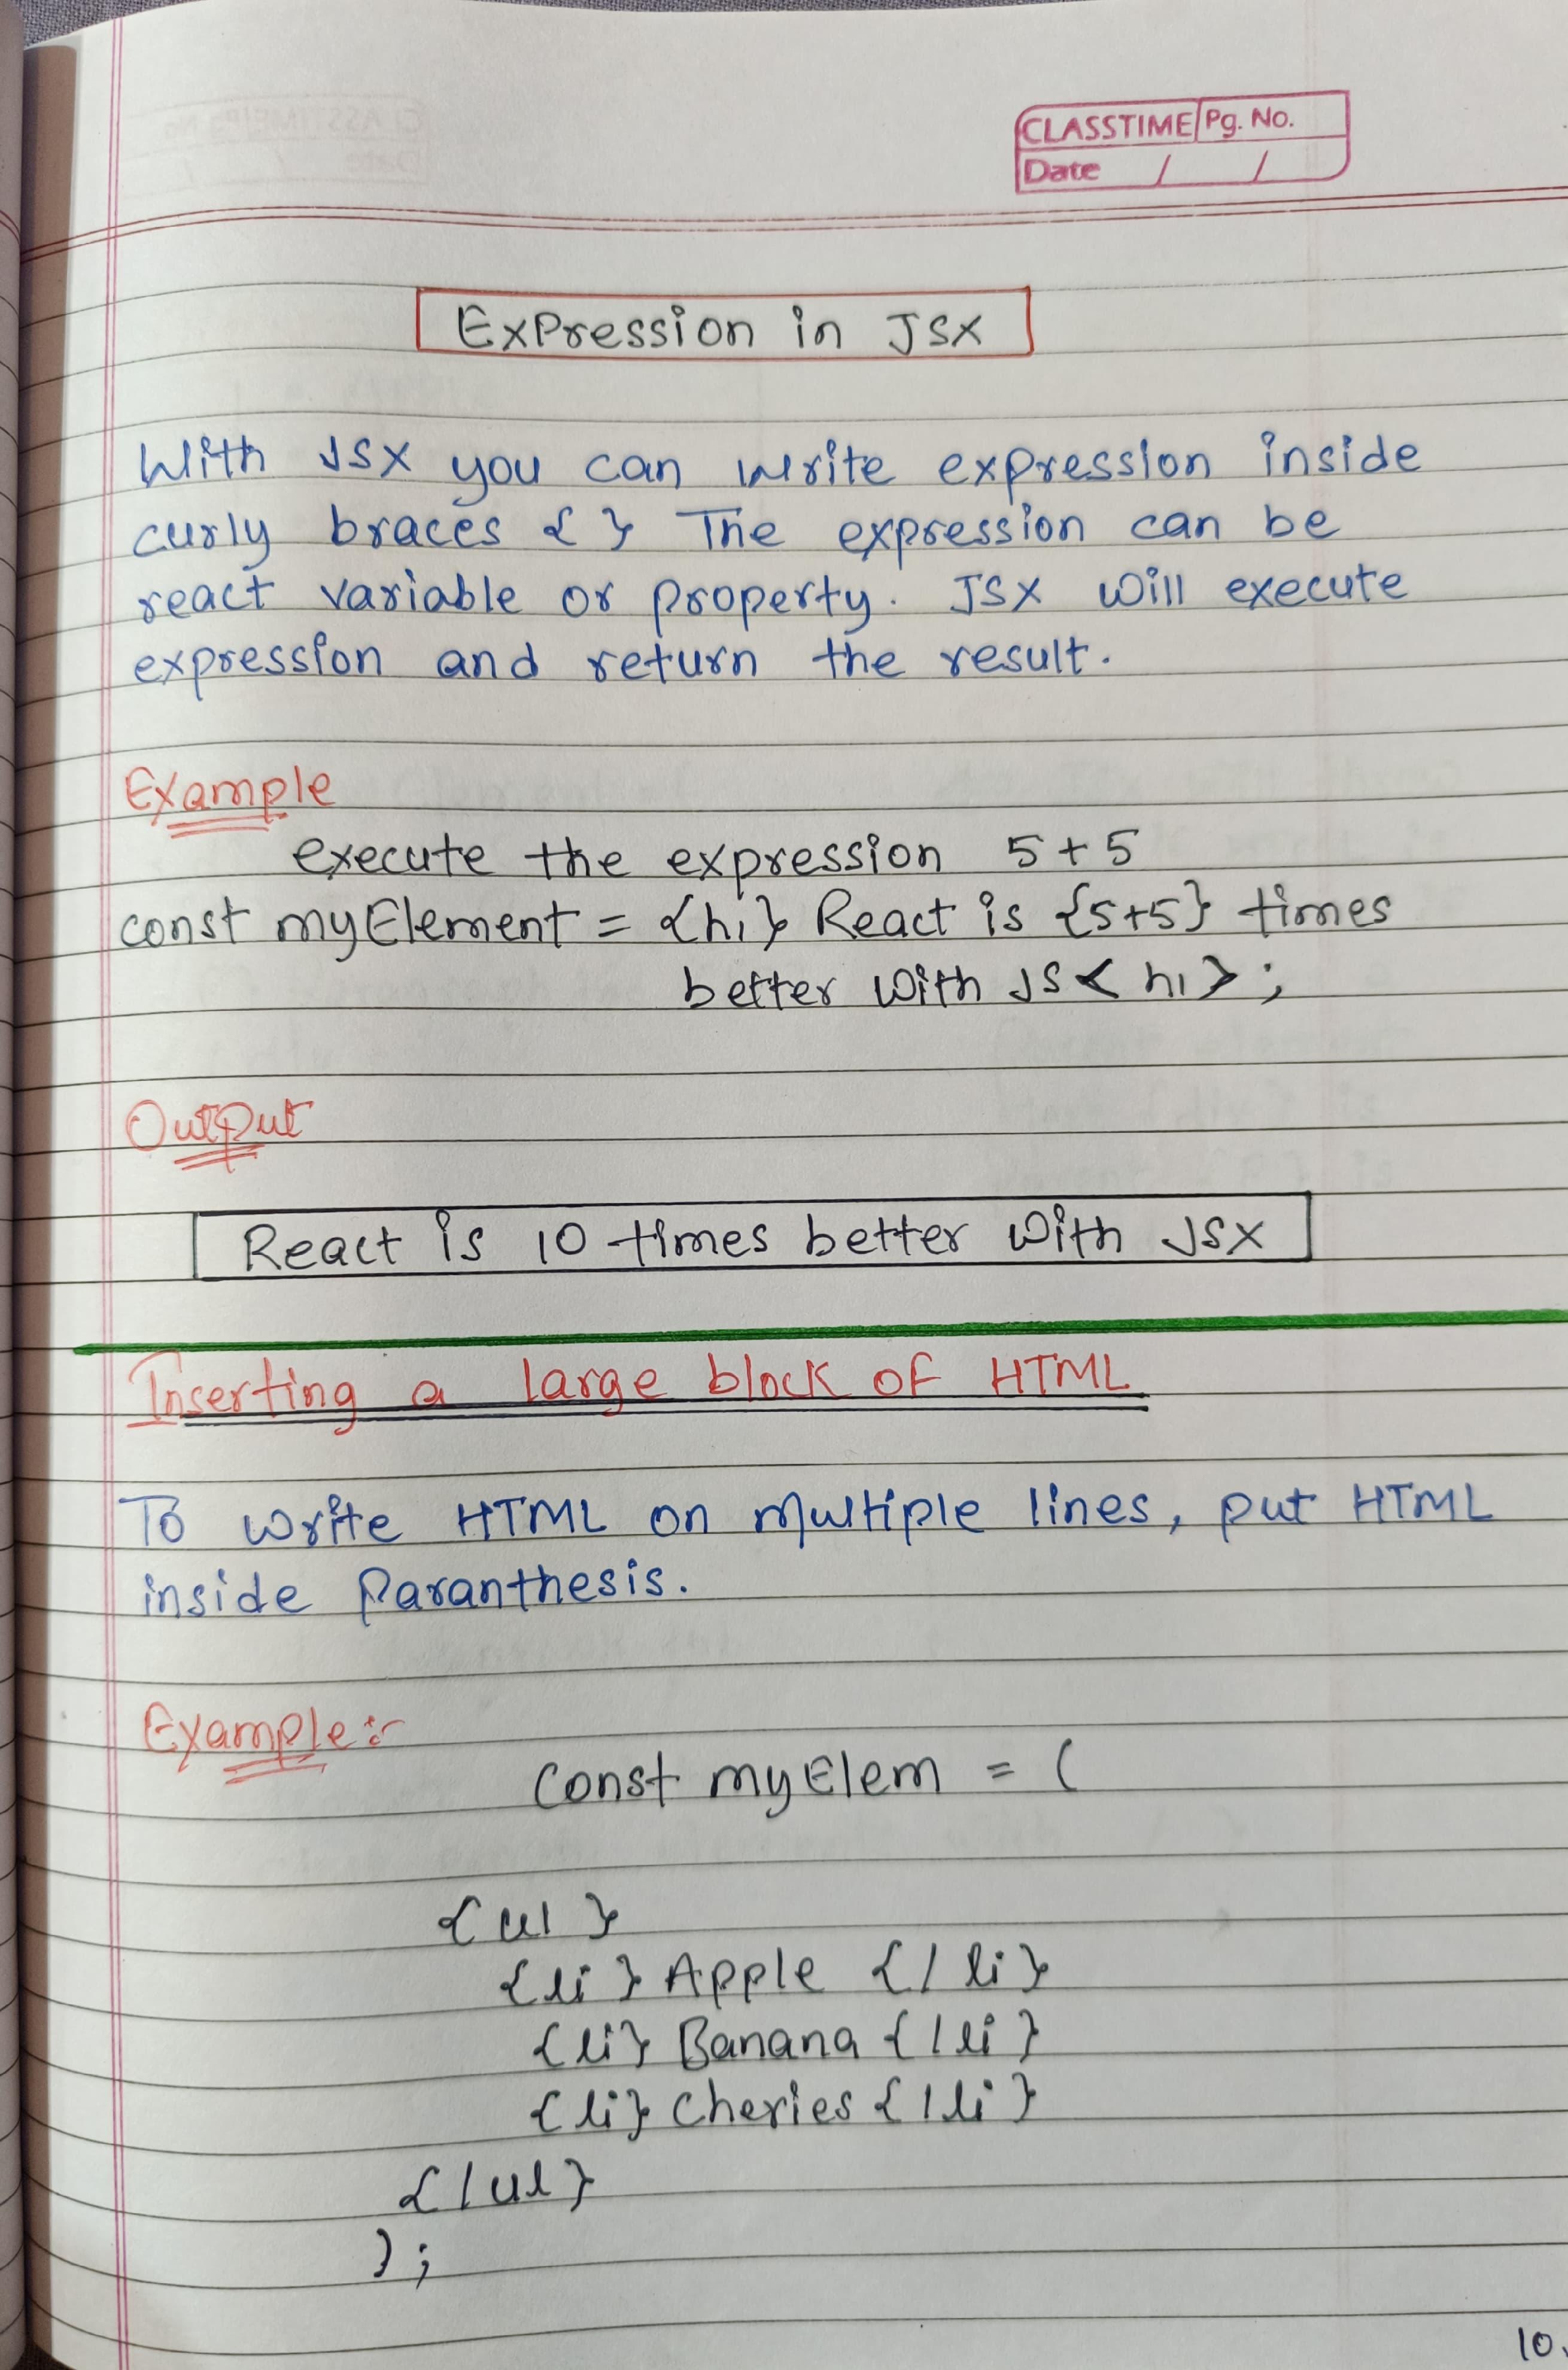 CLASSTIME Pg. No.
Date / /
Expression in JSX
With JSX you can write expression inside
curly braces { } The expression can be
react variable or property. JSX will execute
expression and return the result.
Example
execute the expression 5+5
const myElement = {h1} React is {5+5} times
better with JS<h1>;
Output
React is 10 times better with JSX
Inserting a large block of HTML
To write HTML on multiple lines, put HTML
inside Paranthesis.
Example:-
const myElem = (
{ul}
{li} Apple {/li}
{li} Banana {/li}
{li} Cheries {/li}
{/ul}
);
10.